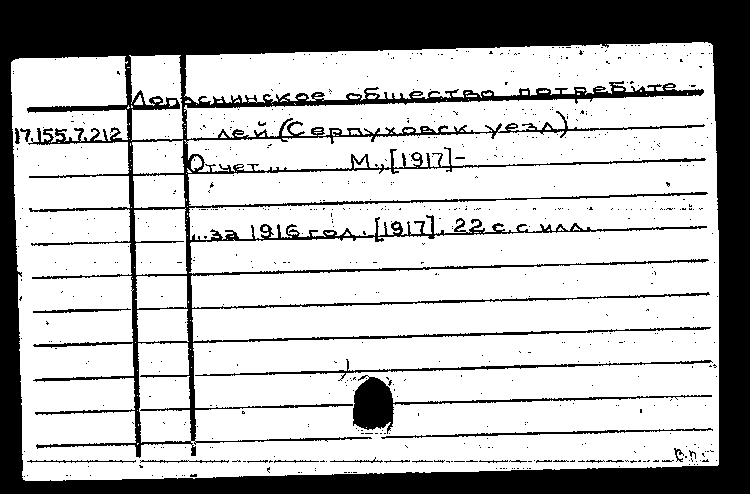 Лопаснинское общество потребите-
17.155.7.212 лей (Серпуховск. уезд).
Отчет... М., [1917]-
...за 1916 год. [1917]. 22 с. с илл.
В.п.